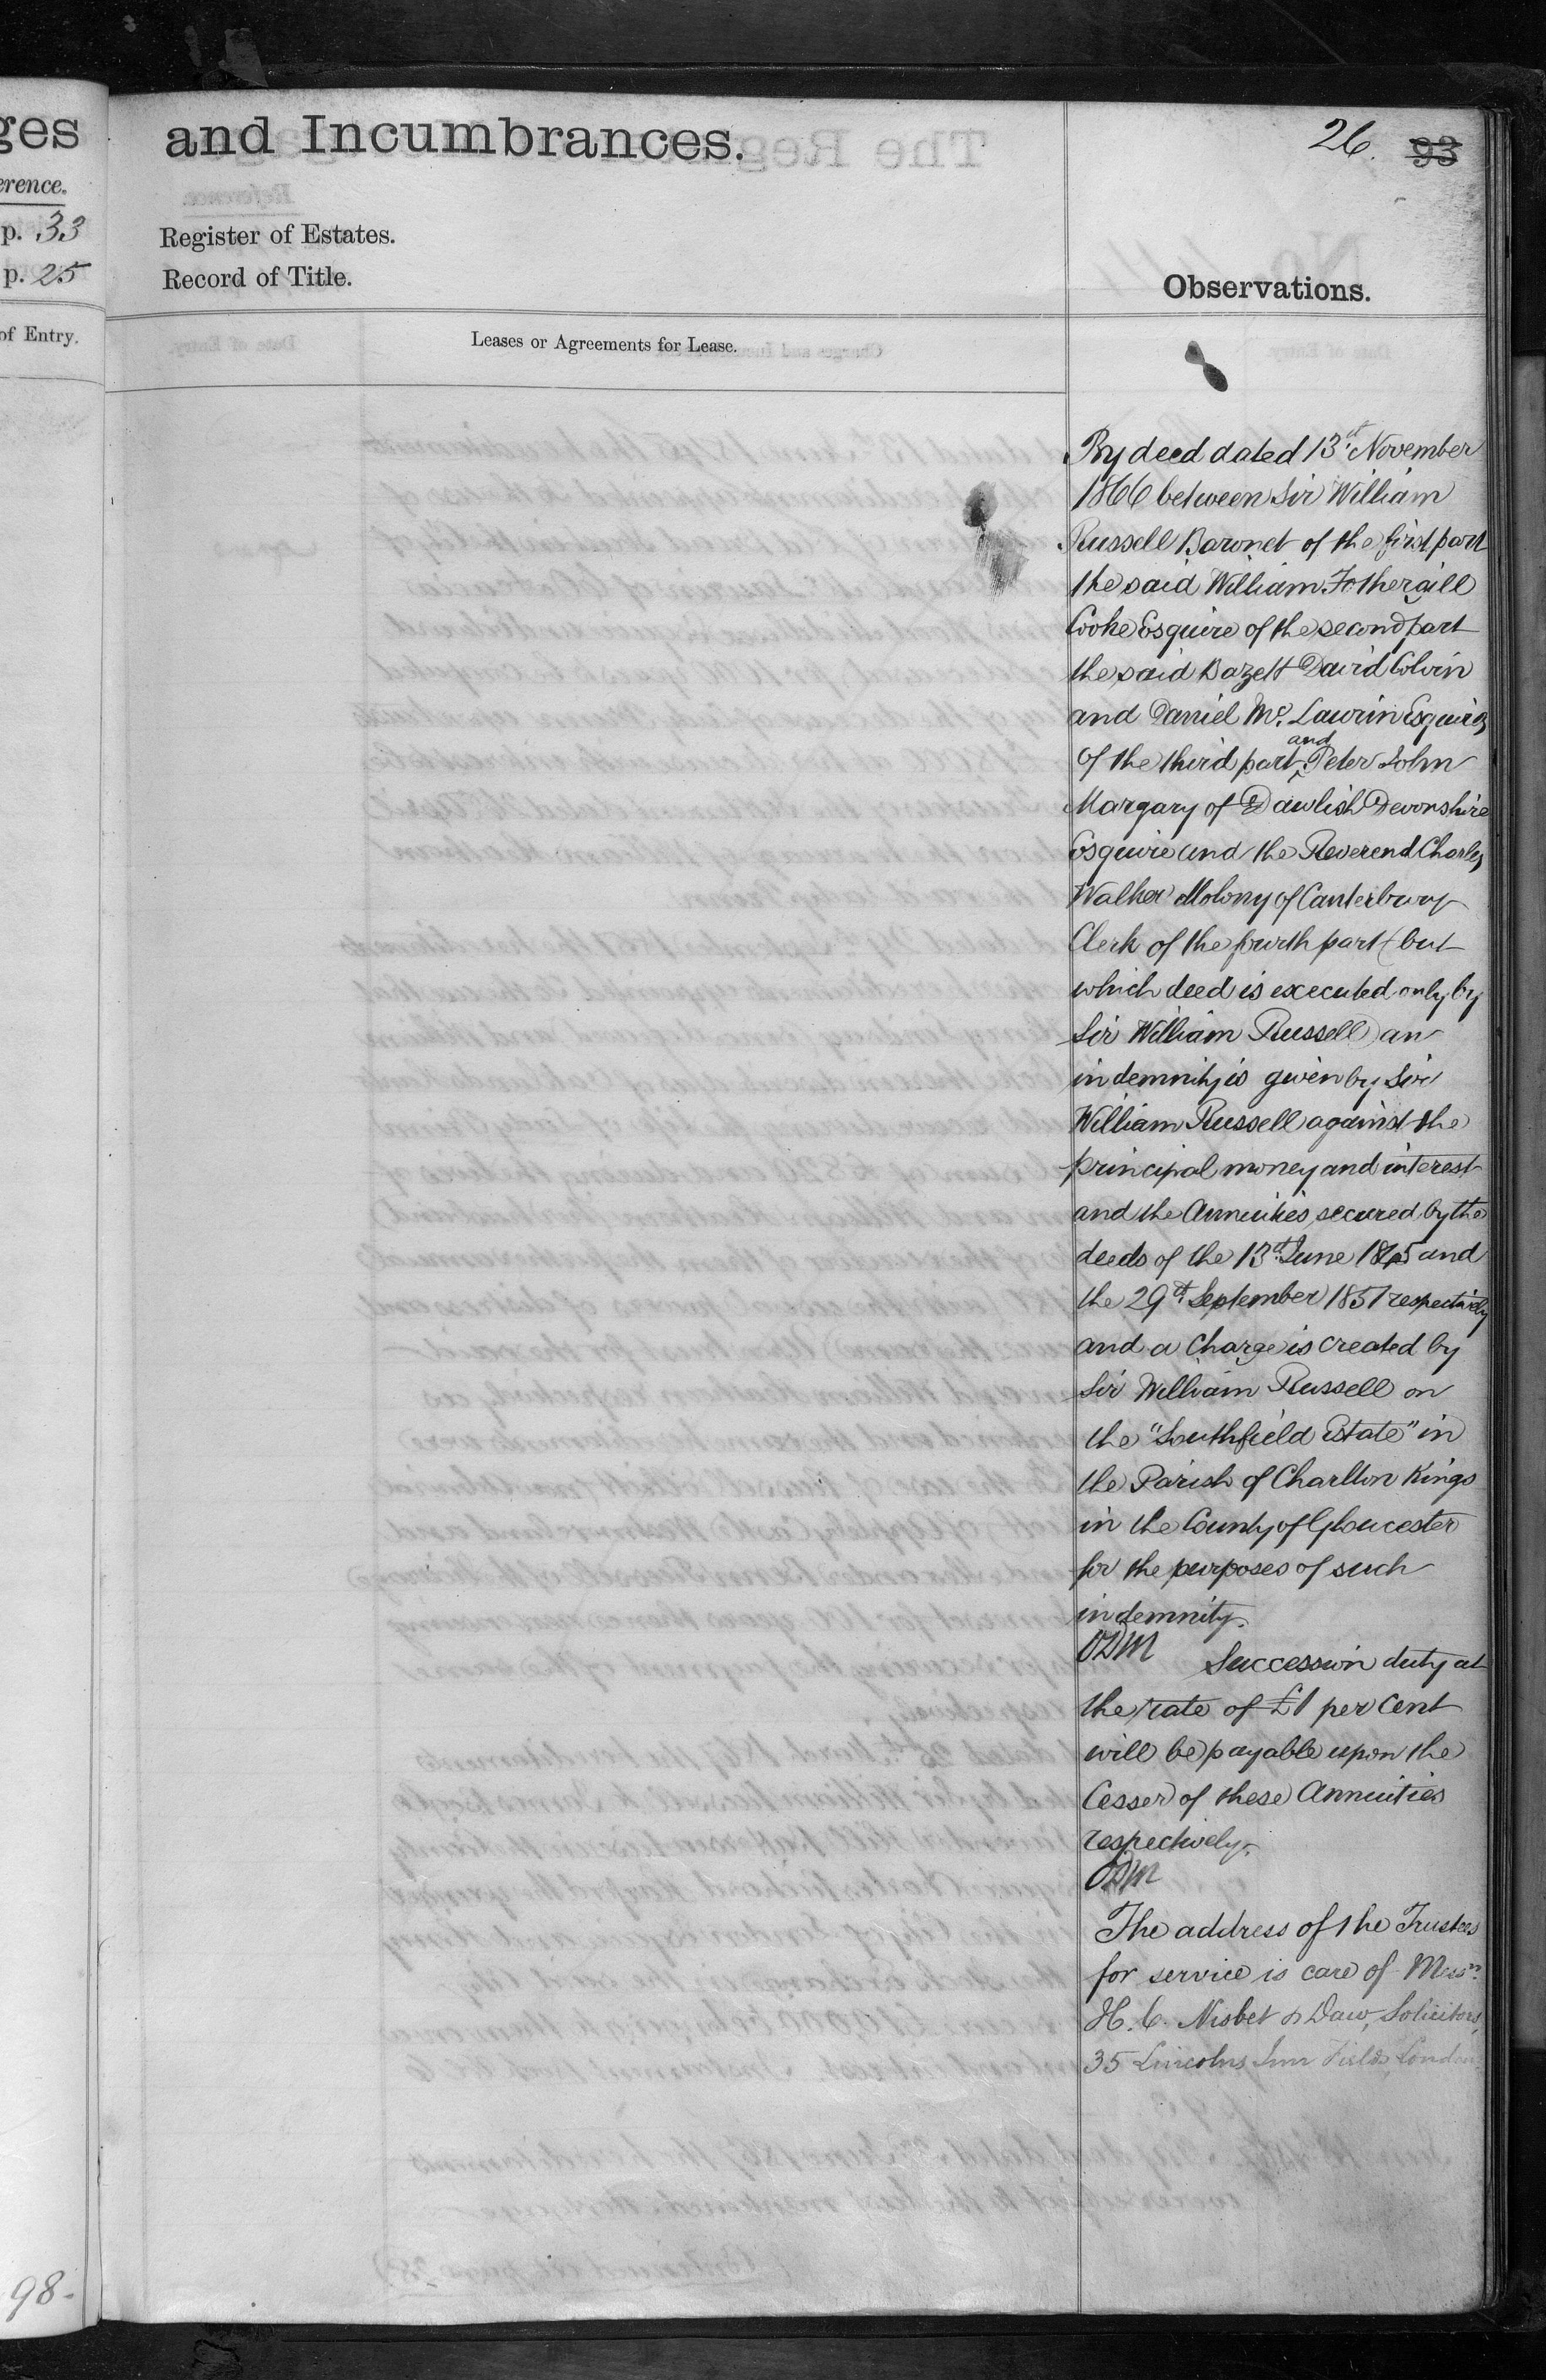 ges
and Incumbrances.
26. 93
erence.
p. 33
Register of Estates.
p. 25
Record of Title.
Observations.
of Entry.
Leases or Agreements for Lease.
By deed dated 13th November
1866 between Sir William
Russell Baronet of the first part
the said William Fothergill
Cooke Esquire of the second part
the said Bazett David Colvin
and Daniel Mc. Laurin Esquires
of the third part and Peter John
Margary of Dawlish Devonshire
Esquire and the Reverend Charles
Walker Molony of Canterbury
Clerk of the fourth part (but
which deed is executed only by
Sir William Russell) an
indemnity is given by Sir
William Russell against the
principal money and interest
and the Annuities secured by the
deeds of the 13th June 1845 and
the 29th September 1851 respectively
and a Charge is created by
Sir William Russell on
the "Southfield Estate" in
the Parish of Charlton Kings
in the County of Gloucester
for the purposes of such
indemnity.
Succession duty at
the rate of £1 per Cent
will be payable upon the
Cesser of these Annuities
respectively.
The address of the Trustees
for service is care of Messrs.
H. C. Nisbet & Daw, Solicitors,
35 Lincolns Inn Fields, London.
98.